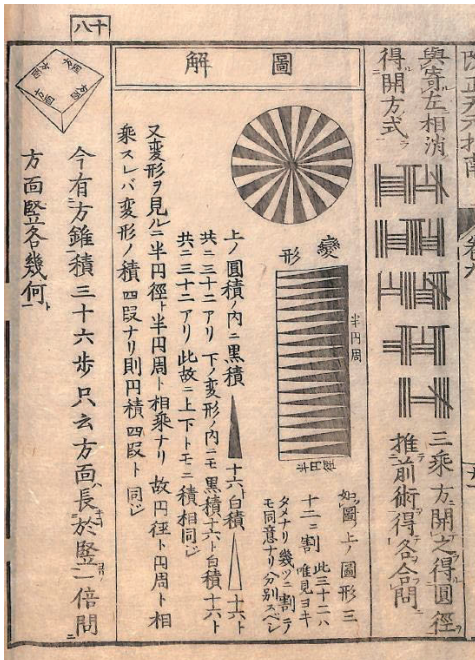 與寄左相消
得開方式
三乘方開之得圓徑
推前術得各合問
圖解
變形
半円周
半円徑
如圖上ノ圓形三
十二ニ割
此三十二ハ
唯見ヨキ
タメナリ幾ツニ割テ
モ同意ナリ分別スベシ
上ノ圓積内ニ黒積 十六ト白積 十六ト
共ニ三十二アリ下ノ変形ノ内ニモ黒積十六ト白積十六ト
共ニ三十二アリ此故ニ上下トモニ積相同シ
又変形ヲ見ルニ半円徑ト半円周ト相乘ナリ故円徑ト円周ト相
乘スレバ変形ノ積四段ナリ則円積四段ト同シ
今有方錐積三十六歩只云方面長於竪一倍問
方面竪各幾何
十八